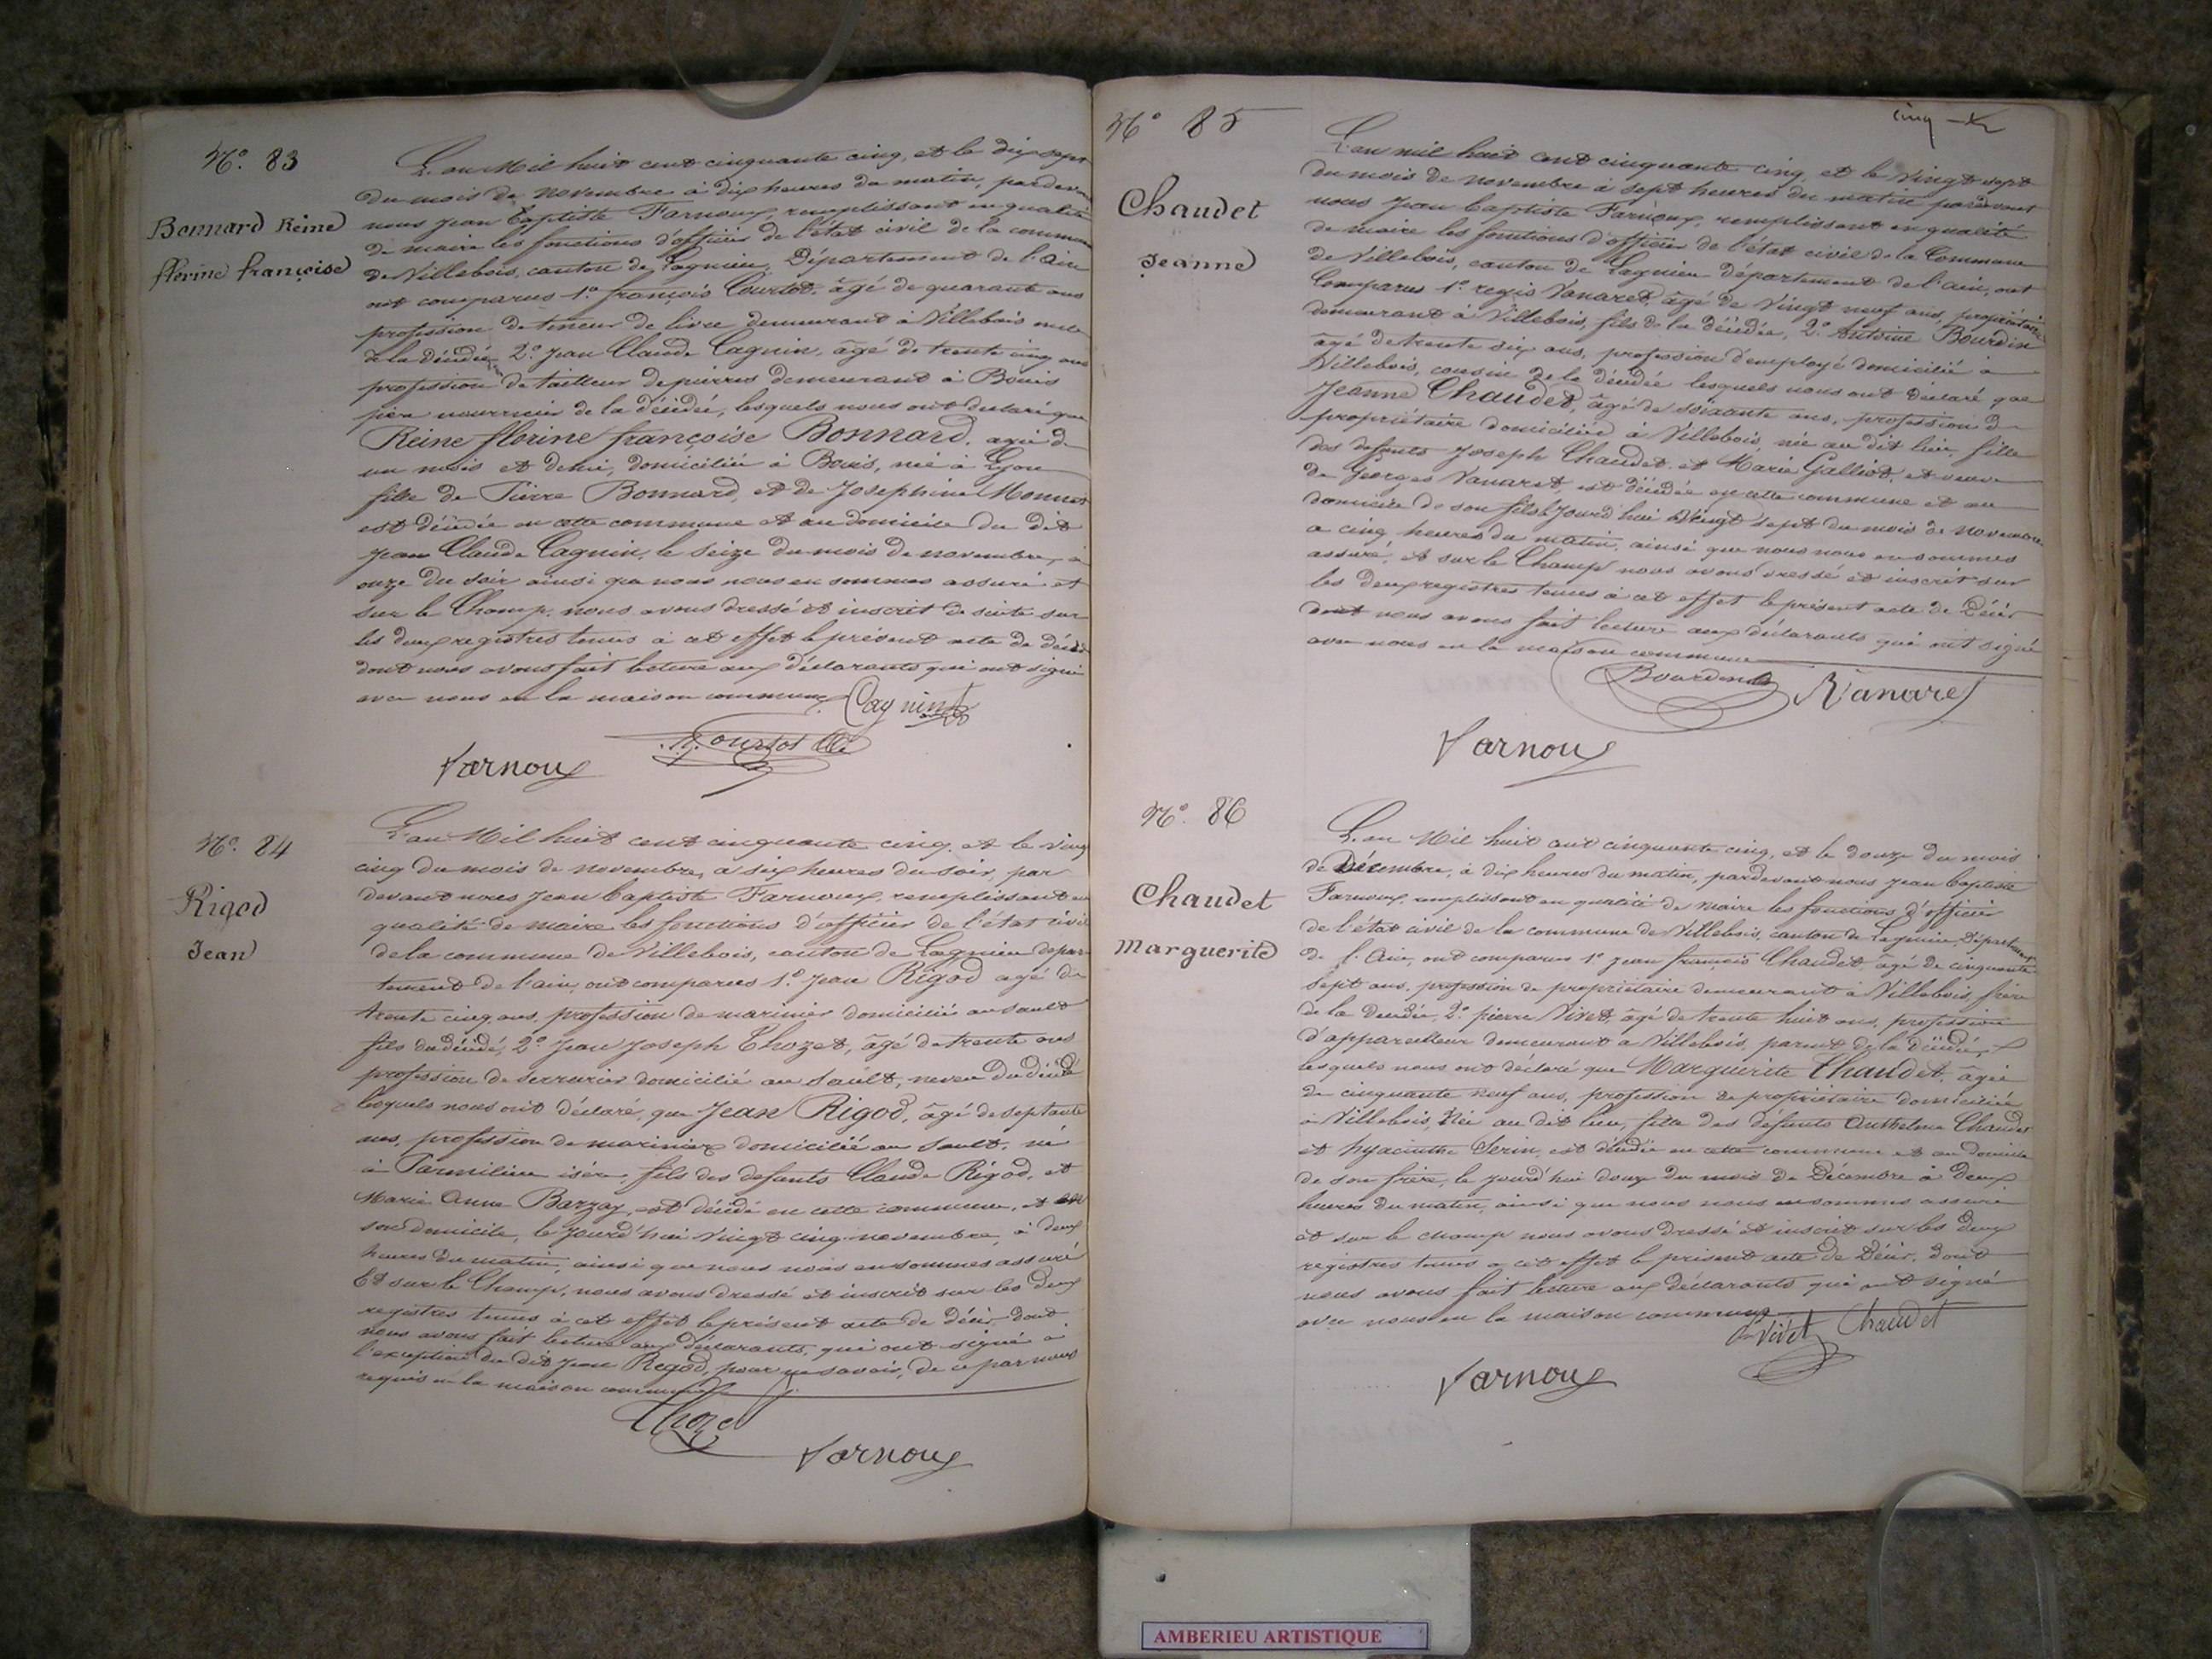 N° 83
Bonnard Reine
florine françoise
L'an Mil huit cent cinquante cinq, et le dix sept
du mois de novembre à dix heures du matin, pardevant
nous jean Baptiste Farnoux, remplissant en qualité
de maire les fonctions d'officier de l'état civil de la commune
de Villebois, canton de Lagnieu, Département de l'ain
ont comparus 1° françois Courtot, âgé de quarante ans
profession de teneur de livre demeurant à Villebois
de la décédée 2° jean Claude Cagnin, âgé de trente cinq ans
profession de tailleur de pierres demeurant à Bouis
père nourricier de la décédée, lesquels nous ont déclaré que
Reine florine françoise Bonnard, agée de
un mois et demi, domiciliée à Bouis, née à Lyon
fille de Pierre Bonnard, et de Josephine Monnet
est décédée en cette commune et au domicile du dit
jean Claude Cagnin, le seize du mois de novembre, à
onze du soir ainsi que nous nous en sommes assuré et
sur le Champ, nous avons dressé et inscrit de suite sur
les deux registres tenus à cet effet le présent acte de décès
dont nous avons fait lecture aux déclarants qui ont signé
avec nous en la maison commune
Cagnin
Farnoux
N° 84
Rigod
Jean
L'an Mil huit cent cinquante cinq, et le vingt
cinq du mois de novembre, à six heures du soir, par
devant nous Jean baptiste Farnoux, remplissant en
qualité de maire les fonctions d'officier de l'état civil
de la commune de Villebois, canton de Lagnieu depar
tement de l'ain, ont comparus 1° Jean Rigod agé de
trente cinq ans, profession de marinier domicilié au Sault
fils du décédé, 2° Jean Joseph Thozet, âgé de trente ans
profession de serrurier domicilié au Sault, neveu du décédé
lesquels nous ont déclaré, que Jean Rigod, âgé de septante
ans, profession de marinier domicilié au Sault, né
à Parmilieu isère, fils des defunts Claude Rigod, et
Marie Anne Barzay, est décédé en cette commune, et en
son domicile, le jourd'hui vingt cinq novembre, à deux
heures du matin, ainsi que nous nous en sommes assuré
Et sur le Champ, nous avons dressé et inscrit sur les deux
registres tenus à cet effet le présent acte de décès dont
nous avons fait lecture aux déclarants, qui ont signé à
l'exception du dit Jean Rigod, pour ne savoir, de ce par nous
requis en la maison commune
Thozet
Farnoux
cinq
N° 85
Chaudet
Jeanne
L'an mil huit cent cinquante cinq, et le vingt sept
du mois de novembre à sept heures du matin pardevant
nous Jean baptiste Farnoux, remplissant en qualité
de maire les fonctions d'officier de l'état civil de la Commune
de Villebois, canton de Lagnieu département de l'ain, ont
Comparus 1° regis Vanaret, âgé de vingt neuf ans, propriétaire
demeurant à Villebois, fils de la décédée, 2° Antoine Bourdin
âgé de trente six ans, profession d'employé domicilié à
Villebois, cousin de la décédée lesquels nous ont déclaré que
Jeanne Chaudet, âgé de soixante ans, profession de
propriétaire domiciliée à Villebois née au dit lieu, fille
des defunts Joseph Chaudet et Marie Galliot, et veuve
de Georges Vanaret, est décédée en cette commune et au
domicile de son fils le Jourd'hui Vingt sept du mois de novembre
a cinq heures du matin, ainsi que nous nous en sommes
assuré, et sur le Champ nous avons dressé et inscrit sur
les deux registres tenus à cet effet le présent acte de Décès
dont nous avons fait lecture aux déclarants qui ont signé
avec nous en la maison commune
Bourdin
R Vanaret
Farnoux
N° 86
Chaudet
Marguerite
L'an Mil huit cent cinquante cinq, et le douze du mois
de Décembre, à dix heures du matin, pardevant nous jean baptiste
Farnoux, remplissant en qualité de maire les fonctions d'officier
de l'état civil de la commune de Villebois, canton de Lagnieu, Département
de l'Ain, ont comparus 1° jean françois Chaudet, âgé de cinquante
sept ans, profession de propriétaire demeurant à Villebois, frère
de la décédée, 2° pierre Vivet, âgé de trente huit ans, profession
d'appareilleur demeurant a Villebois, parent de la décédée,
lesquels nous ont déclaré que Marguerite Chaudet, agée
de cinquante neuf ans, profession de propriétaire domiciliée
à Villebois, Née au dit lieu, fille des défunts Anthelme Chaudet
et hyacinthe Serin, est décédée en cette commune et au domicile
de son frère, le jourd'hui douze du mois de Décembre à deux
heures du matin, ainsi que nous nous en sommes assuré
et sur le champ nous avons dressé et inscrit sur les deux
registres tenus a cet effet le présent acte de Décès, dont
nous avons fait lecture aux déclarants qui ont signé
avec nous en la maison commune
Vivet Chaudet
Farnoux
AMBERIEU ARTISTIQUE